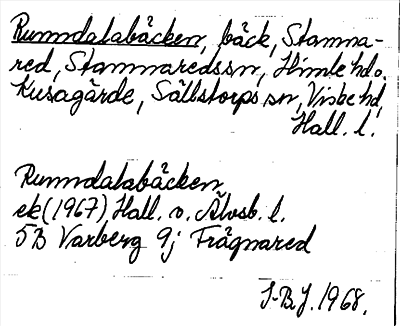 Runndalabäcken, bäck, Stamna-
red, Stamnaredssn, Himle hd o.
Kusagärde, Sällstorps sn, Viske hd,
Hall. l.
Runndalabäcken
ek (1967), Hall. o. Älvsb. l.
5B Varberg 9j Frägnared
S-B.J. 1968.